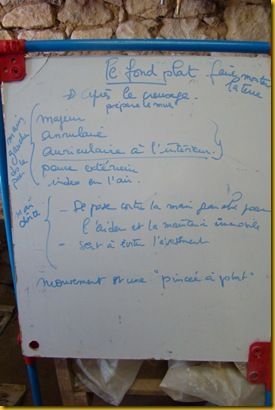 Le fond plat faire monter
la terre
→ après le creusage.
prépare le mur
main gauche dans le pot
majeur
annulaire
auriculaire à l'intérieur.
pouce extérieur
index en l'air.
main droite
- Se pose contre la main gauche pour
l'aider et la maintenir immobile
- sert à éviter l'évasement
Mouvement est une "pincée à plat"